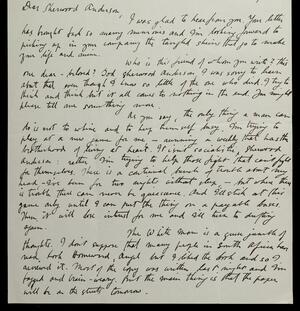 Dear Sherwood Anderson,
I was glad to hear from you. Your letter
has brought back so many memories and I'm looking forward to
picking up in your company the tangled skeins that go to make
your life and mine.
Who is the friend of whom you write? this
one dear - beloved? God Sherwood Anderson I was sorry to hear
about that even though I know so little of the one who died. I try to
think and think but it all comes to nothing in the end. You might
please tell me something more.
As you say, the only thing a man can
do is not to whine and to keep himself busy. I'm trying to
play at a new game for me - running a weekly that has the
brotherhood of living at heart. It isn't socialistic, Sherwood
Anderson: rather I'm trying to help those fight that can't fight
for themselves. There is a continual bunch of trouble about my
head - I've been for two nights without sleep - but when there
is trouble there can never be quiescence. And I'll stick at this
game only until I can put the thing on a payable basis.
Then it will lose interest for me and I'll turn to drifting
again.
The White Man is a queer jumble of
thoughts. I don't suppose that many people in South Africa have
read, book but I liked the book and so I
reviewed it. Most of the copy was written last night and I'm
fagged and brain-weary. But the main thing is that the paper
will be on the streets tomorrow.